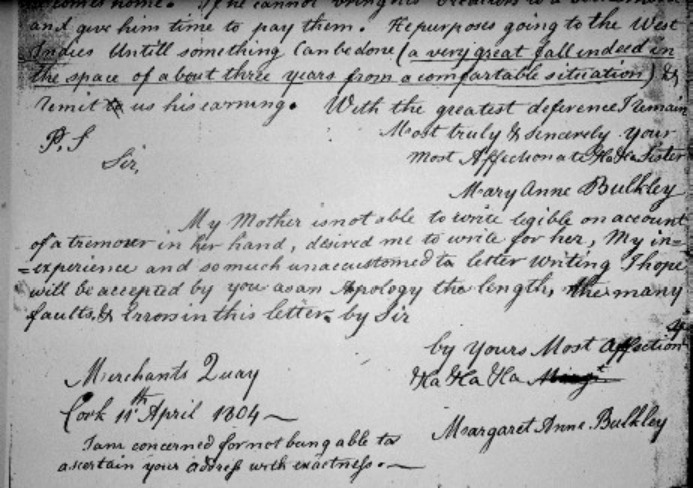 and give him time to pay them. He purposes going to the West
Indies Untill something Can be done (a very great fall indeed in
the space of about three years from a comfortable situation) &
remit to us his earning. With the greatest deference I remain
P.S
Most truly & Sincerely your
Sir,
most Affectionate Sister
Mary Anne Bulkley
My Mother is not able to write legible on account
of a tremoser in her hand, desired me to write for her, My in=
=experience and so much unaccustomed to letter writing I hope
will be accepted by you as an Apology the length, the many
faults, & Errors in this letter. by Sir
by yours Most Affection
Merchants Quay
&Ha &Ha &Ha
Cork 11th April 1804
Margaret Anne Bulkley
I am concerned for not being able to
ascertain your address with exactness.